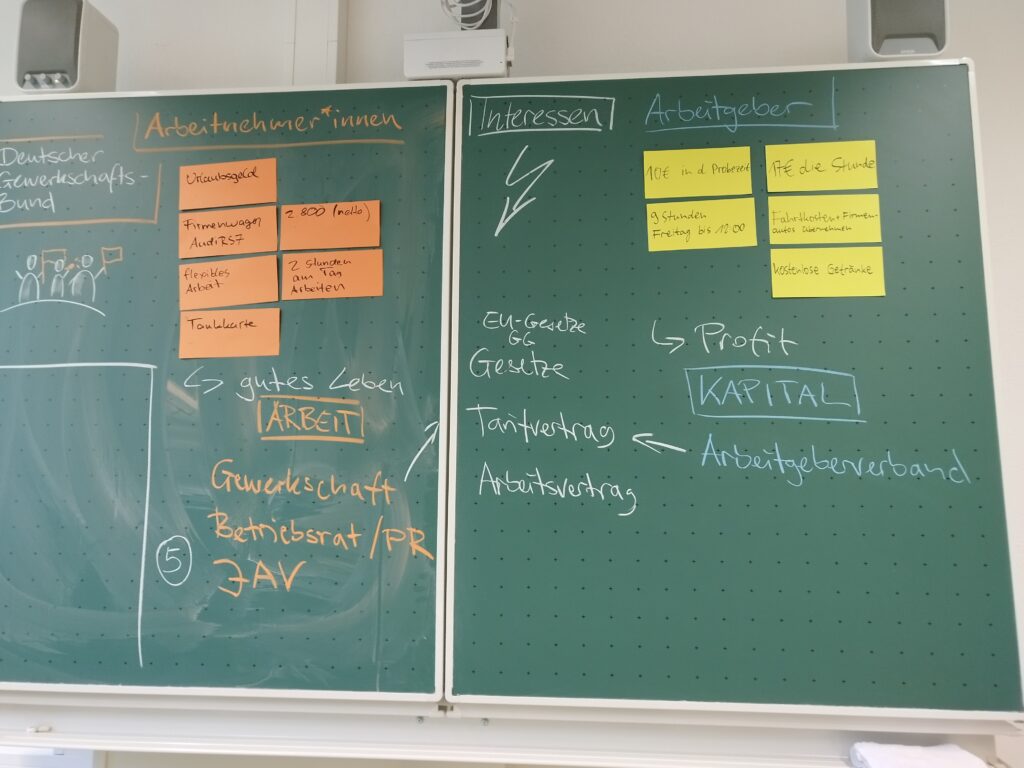 Deutscher
Gewerkschafts-
Bund
Arbeitnehmer*innen
Urlaubsgeld
Firmenwagen
Audi RS7
2 800 (netto)
flexibles
Arbeit
2 Stunden
am Tag
Arbeiten
Tankkarte
↳ gutes Leben
ARBEIT
Gewerkschaft
Betriebsrat/PR
JAV
5
Interessen
EU-Gesetze
GG
Gesetze
Tarifvertrag
Arbeitsvertrag
Arbeitgeber
10€ in d. Probezeit
17€ die Stunde
9 Stunden
Freitag bis 12:00
Fahrtkosten + Firmen-
autos übernehmen
kostenlose Getränke
↳ Profit
KAPITAL
Arbeitgeberverband